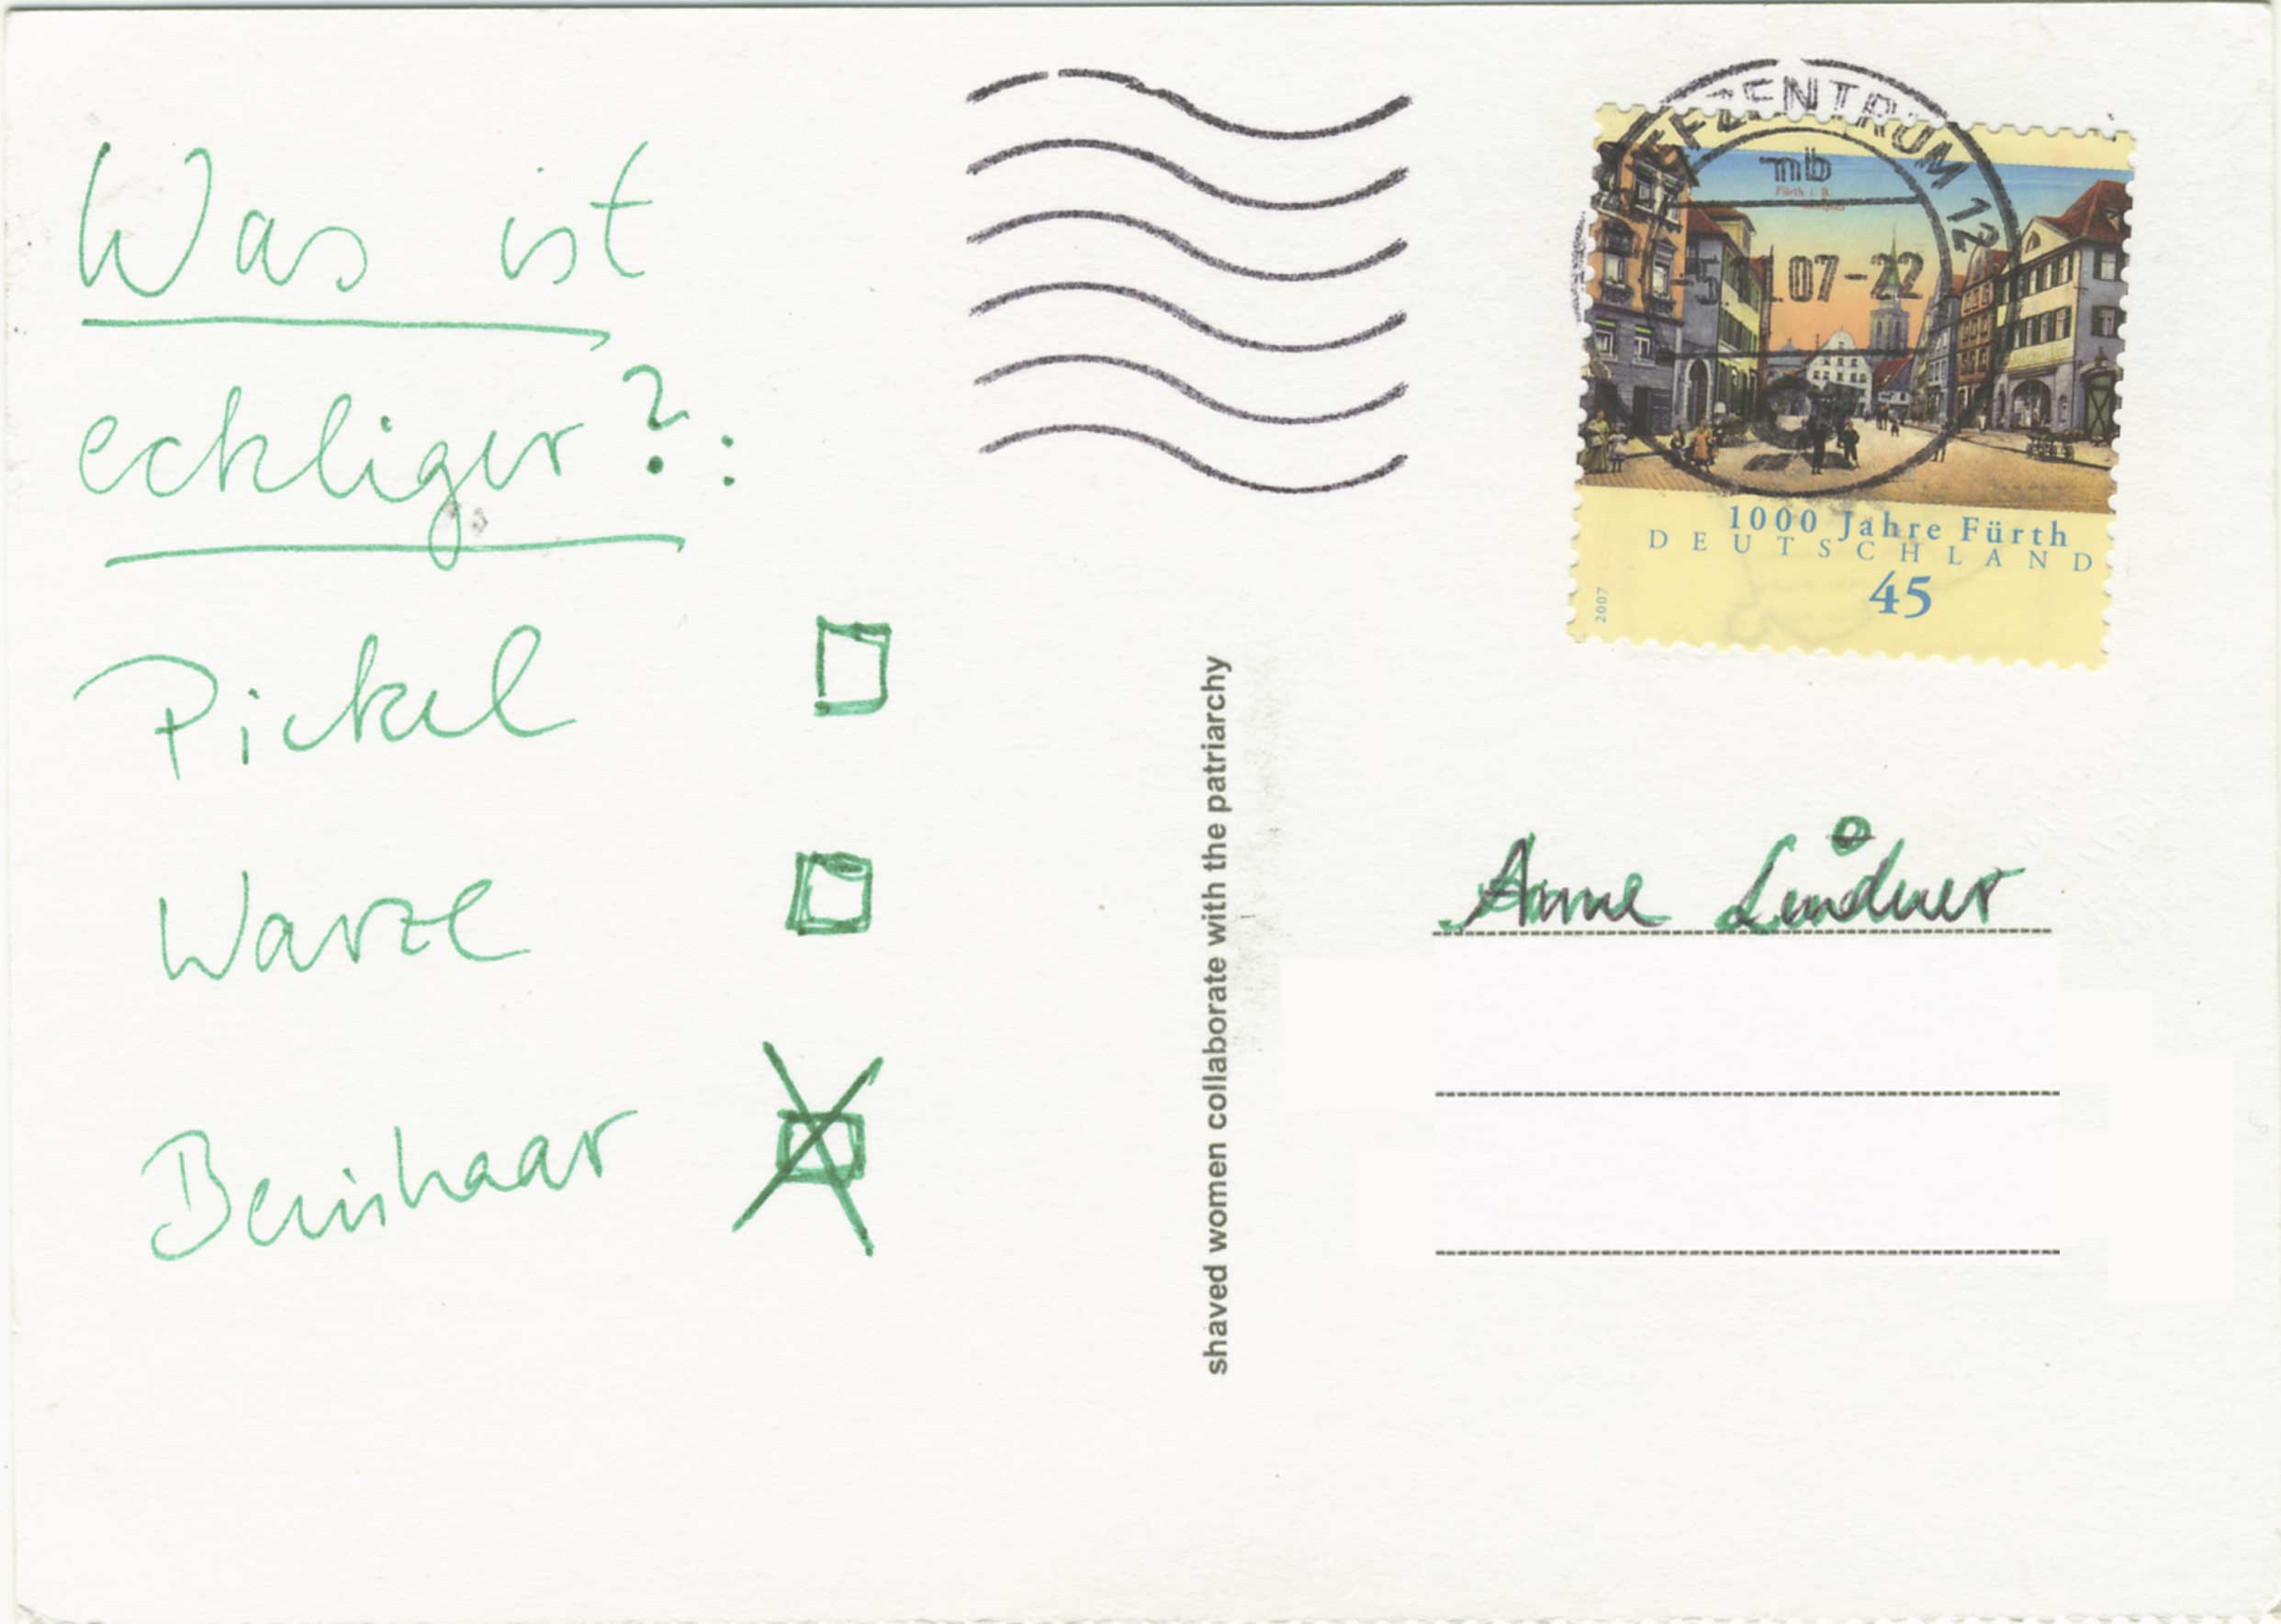 Was ist
eckliger?:
Pickel
Warze
Beinhaar
shaved women collaborate with the patriarchy
ZENTRUM 12
mb
Fürth i. B.
-5. .07-22
1000 Jahre Fürth
DEUTSCHLAND
45
2007
Anne Lindner